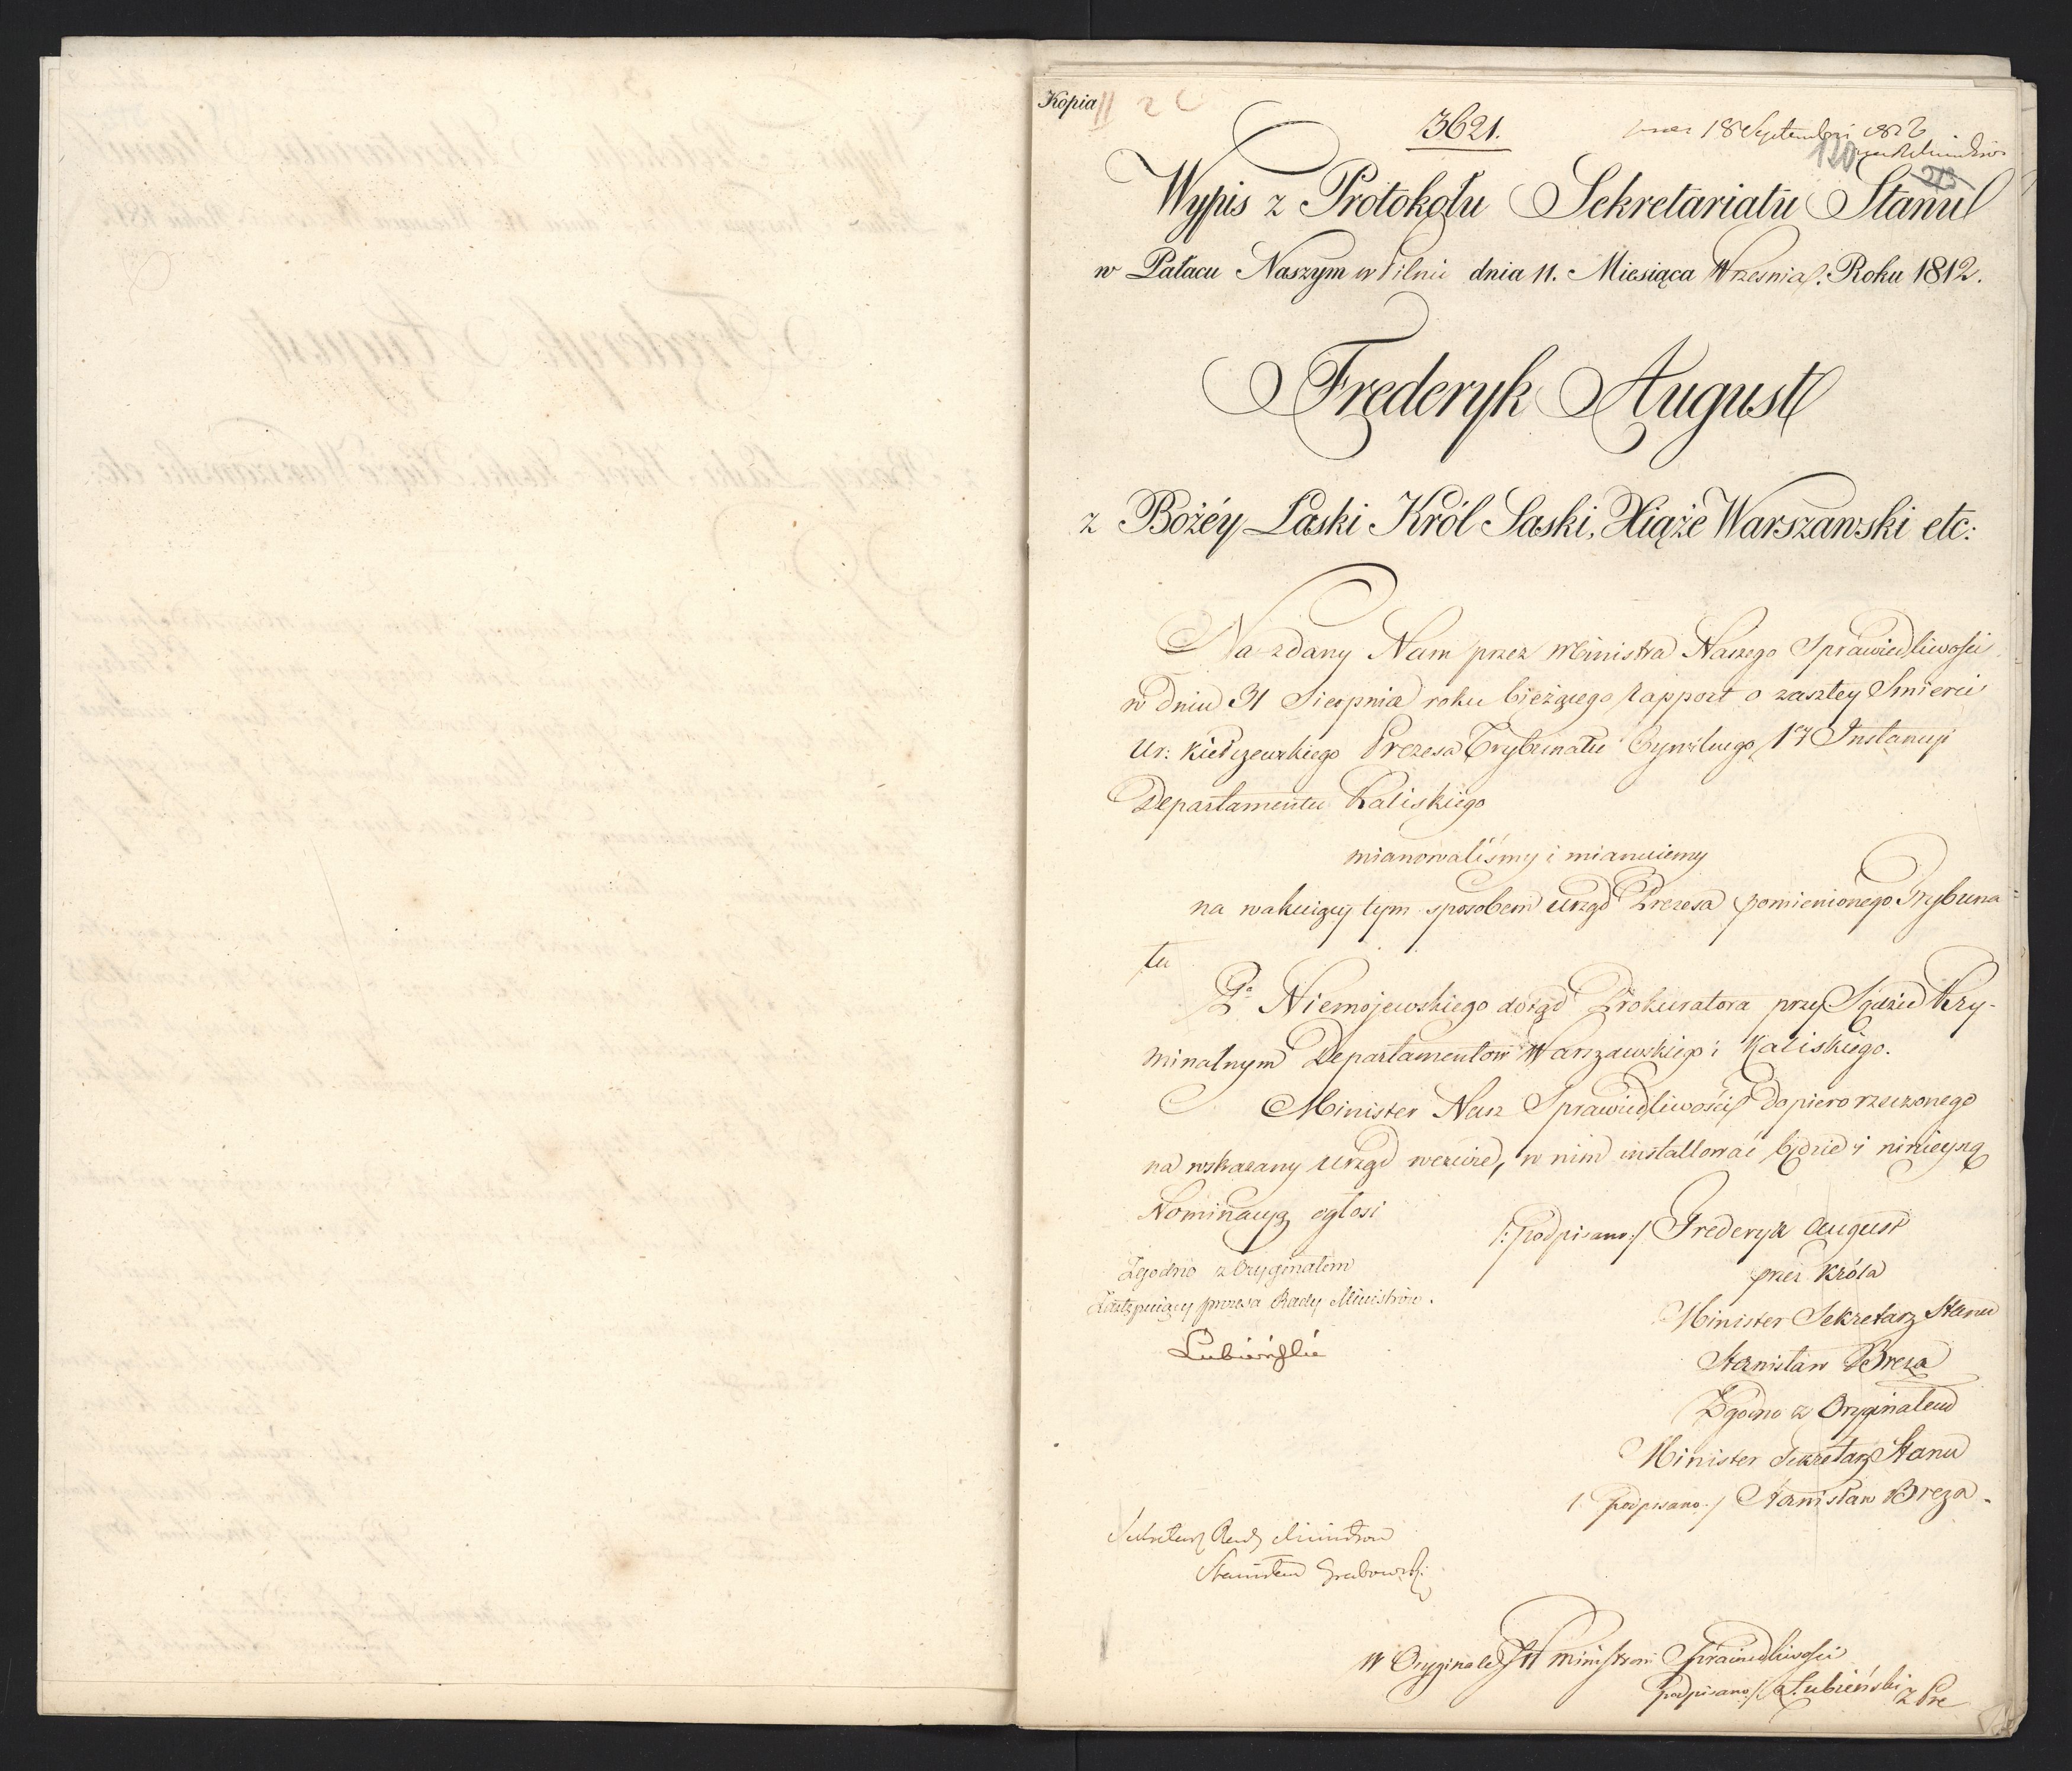 Kopia
3621.
18 Septembri 1812
120
213
Wypis z Protokołu Sekretariatu Stanu
w Pałacu Naszym w Pilnic dnia 11. Miesiąca Wrzesnia. Roku 1812.
Frederyk August
z Bożéy Łaski Król Saski, Xiąże Warszawski etc:
Na zdany Nam przez Ministra Naszego Sprawiedliwości
w dniu 31 Sierpnia roku bieżącego rapport o zaszłey Smierci
Ur: Kiełczewskiego Prezesa Trybunału Cywilnego 1ey Instancyi
Departamentu Kaliskiego
mianowaliśmy i mianuiemy
na wakuiący tym sposobem urząd Prezesa pomienionego Trybuna
łu
Po Niemojewskiego dotąd Prokuratora przy Sądzie Kry-
minalnym Departamentów Warszawskiego i Kaliskiego.
Minister Nasz Sprawiedliwości dopiero rzeczonego
na wskazany urząd wezwie, w nim installować będzie i ninieyszą
Nominacyą ogłosi
/: podpisano :/ Frederyk August
Zgodno z Oryginałem
przez Króla
Zastępuiący prezesa Rady Ministrów.
Minister Sekretarz Stanu
Łubieński
Stanisław Breza
Zgodno z Oryginałem
Minister Sekretarz Stanu
/: podpisano :/ Stanisław Breza.
Sekretarz Rady Ministrow
Stanisław Grabowski
W Oryginale JW Ministrowi Sprawiedliwości
podpisano/ Łubieński z Pre